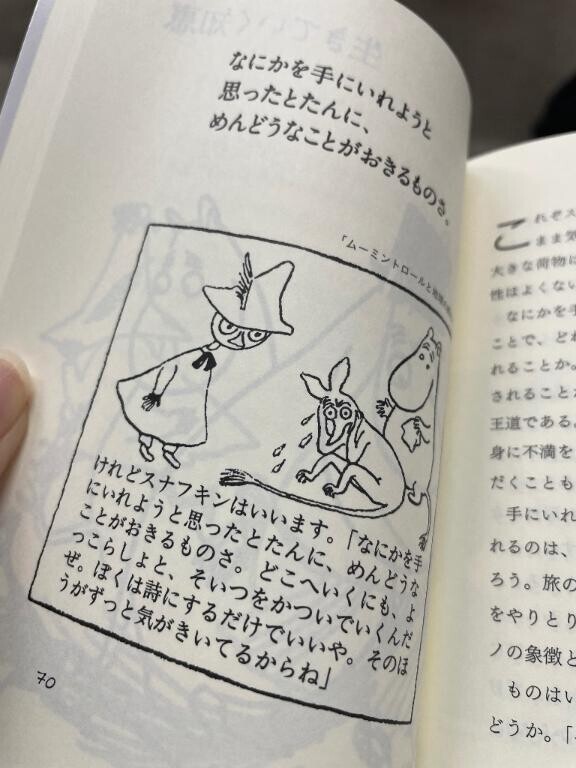 生きていく知恵
なにかを手にいれようと
思ったとたんに、
めんどうなことがおきるものさ。
「ムーミントロールと地球の
けれどスナフキンはいいます。「なにかを手
にいれようと思ったとたんに、めんどうな
ことがおきるものさ。どこへいくにも、よ
っこらしょと、そいつをかついでいくんだ
ぜ。ぼくは詩にするだけでいいや。そのほ
うがずっと気がきいてるからね」
70
これぞス
まま気
大きな荷物に
性はよくない
なにかを手
ことで、どれ
れることか。
されることか
王道である。
身に不満を
だくことも
手にいれ
れるのは、
ろう。旅の
をやりとり
ノの象徴と
ものはい
どうか。「